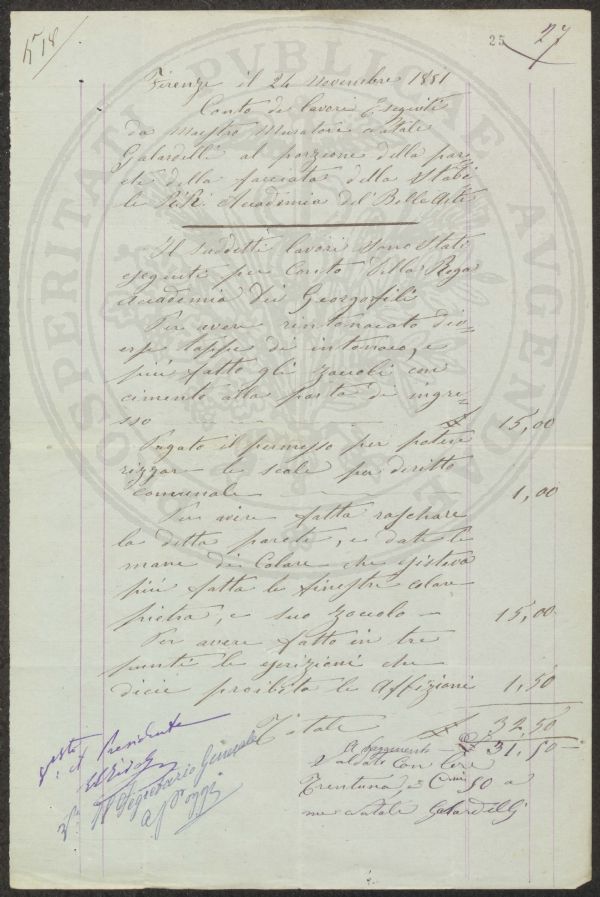 Nº 18
25
27
Firenze il 24 Novembre 1881
Conto de lavori Eseguiti
da Maestro Muratore Natale
Galardelli al porzione della pare=
te della facciata della Stabi
le R.R. Accademia del Belle Arti
Il suddetti lavori sono Stati
eseguiti per Conto della Rega
Accademia dei Georgofili
Per avere rintonacato dive=
erse toppe di intonaco, e
più fatto gli zoccoli con
cimento alla porta di ingre=
sso £ 15,00
Pagato il permesso per potere
rizzar le scale per diritto
Comunale 1,00
Per avere fatta raschare
la detta parete, e date le
mane di Colare che esisteva
più fatta le finestre colare
pietra, e suo zoccolo 15,00
Per avere fatto in tre
punti le iscrizioni che
dicie proibito le Affizioni 1,50
Totale £ 32,50
£ 31,50
A Pagamento
Saldato Con Lire
Trentuna, e Cmi 50 a
me Natale Galardelli
Visto
il Presidente
LRidolfi
Vº Il Segretario Generale
A Poggi
PROSPERITATI PVBLICAE AVGENDAE